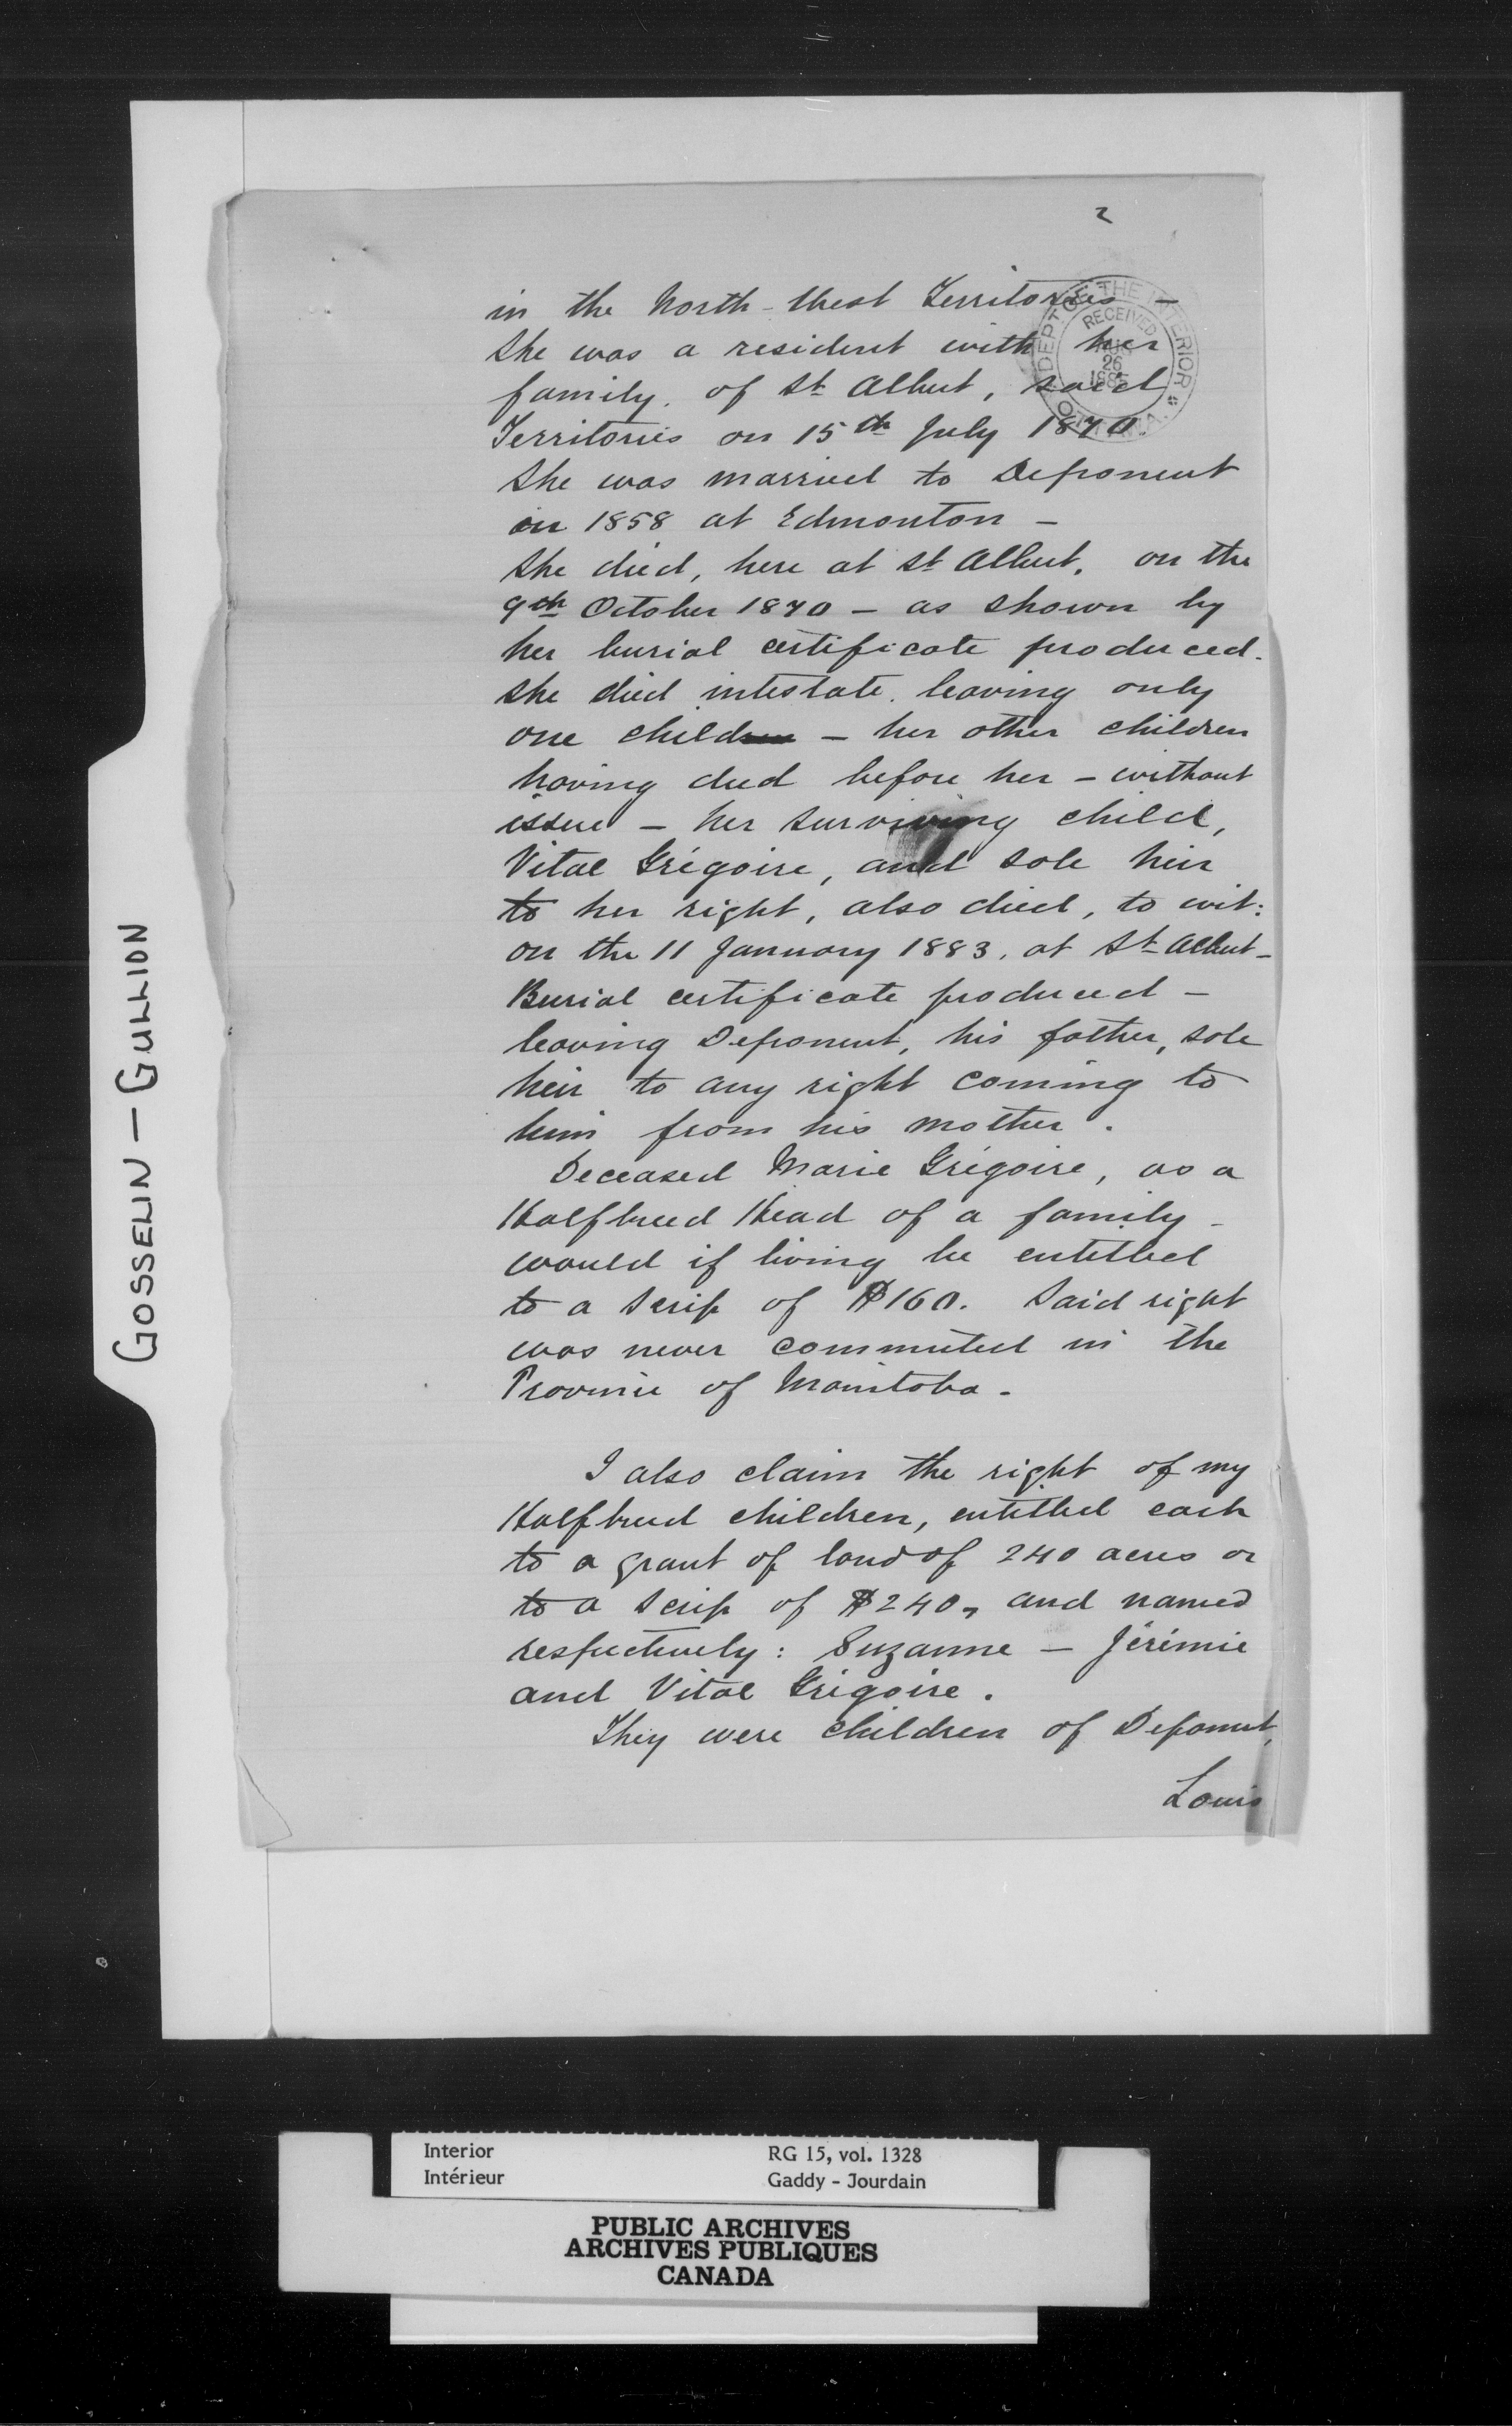 2
DEPT OF THE INTERIOR
RECEIVED
26
OTTAWA
in the North-West Territories -
She was a resident with her
family, of St Albert, said
Territories on 15th July 1870.
She was married to Deponent
in 1858 at Edmonton -
She died, here at St Albert, on the
9th October 1870 - as shown by
her burial certificate produced.
She died intestate, leaving only
one child - her other children
having died before her - without
issue - her surviving child,
Vital Grégoire, and sole heir
to her right, also died, to wit:
on the 11 January 1883, at St Albert -
Burial certificate produced -
leaving Deponent, his father, sole
heir to any right coming to
him from his mother.
Deceased Marie Grégoire, as a
Halfbreed Head of a family -
would if living be entitled
to a scrip of $160. Said right
was never commuted in the
Province of Manitoba -
I also claim the right of my
Halfbreed children, entitled each
to a grant of land of 240 acres or
to a scrip of $240, and named
respectively: Suzanne - Jérémie
and Vital Grégoire.
They were children of Deponent,
Louis
GOSSELIN - GULLION
Interior RG 15, vol. 1328
Intérieur Gaddy - Jourdain
PUBLIC ARCHIVES
ARCHIVES PUBLIQUES
CANADA